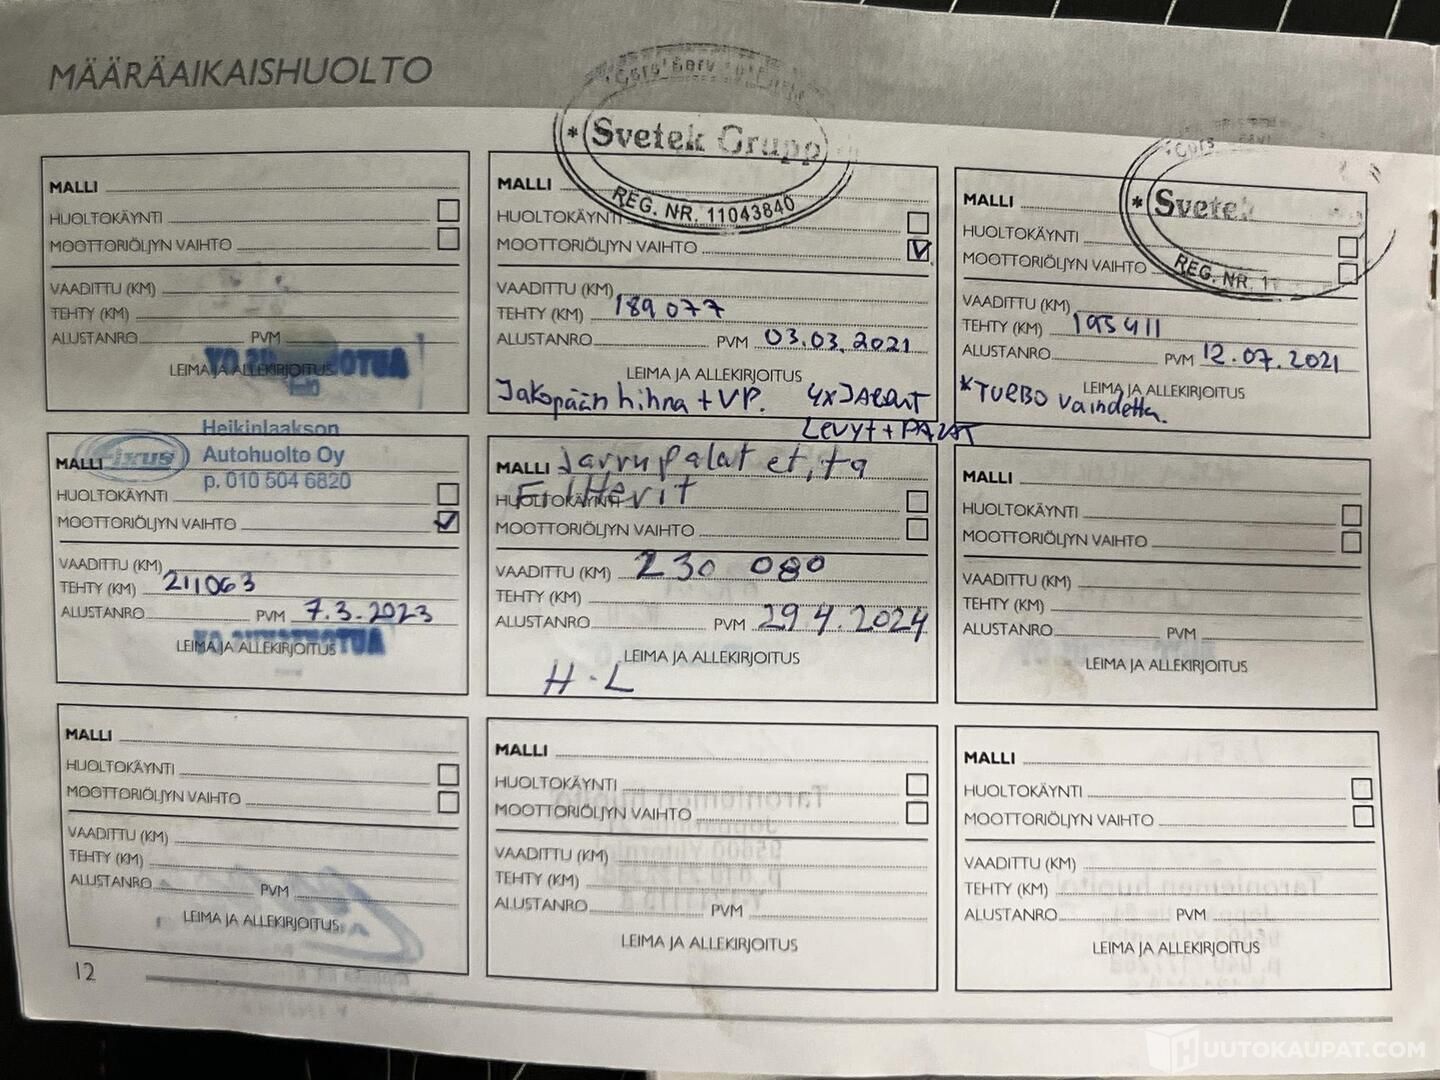 MÄÄRÄAIKAISHUOLTO
MALLI
HUOLTOKÄYNTI
MOOTTORIÖLJYN VAIHTO
VAADITTU (KM)
TEHTY (KM)
ALUSTANRO PVM
LEIMA JA ALLEKIRJOITUS
* Svetek Grupp
REG. NR. 11043840
MALLI
HUOLTOKÄYNTI
MOOTTORIÖLJYN VAIHTO
VAADITTU (KM)
TEHTY (KM) 189 077
ALUSTANRO PVM 03.03.2021
LEIMA JA ALLEKIRJOITUS
Jakopään hihna + VP. 4x
Levyt + PALAT
* Svetek
REG. NR. 1
MALLI
HUOLTOKÄYNTI
MOOTTORIÖLJYN VAIHTO
VAADITTU (KM)
TEHTY (KM) 195411
ALUSTANRO PVM 12.07.2021
LEIMA JA ALLEKIRJOITUS
*TURBO vaihdettu.
Fixus
Heikinlaakson
Autohuolto Oy
p. 010 504 6820
MALLI
HUOLTOKÄYNTI
MOOTTORIÖLJYN VAIHTO
VAADITTU (KM)
TEHTY (KM) 211063
ALUSTANRO PVM 7.3.2023
LEIMA JA ALLEKIRJOITUS
MALLI Jarrupalat et, ta
Filtterit
HUOLTOKÄYNTI
MOOTTORIÖLJYN VAIHTO
VAADITTU (KM) 230 080
TEHTY (KM)
ALUSTANRO PVM 29 4.2024
LEIMA JA ALLEKIRJOITUS
H.L
MALLI
HUOLTOKÄYNTI
MOOTTORIÖLJYN VAIHTO
VAADITTU (KM)
TEHTY (KM)
ALUSTANRO PVM
LEIMA JA ALLEKIRJOITUS
MALLI
HUOLTOKÄYNTI
MOOTTORIÖLJYN VAIHTO
VAADITTU (KM)
TEHTY (KM)
ALUSTANRO PVM
LEIMA JA ALLEKIRJOITUS
MALLI
HUOLTOKÄYNTI
MOOTTORIÖLJYN VAIHTO
VAADITTU (KM)
TEHTY (KM)
ALUSTANRO PVM
LEIMA JA ALLEKIRJOITUS
MALLI
HUOLTOKÄYNTI
MOOTTORIÖLJYN VAIHTO
VAADITTU (KM)
TEHTY (KM)
ALUSTANRO PVM
LEIMA JA ALLEKIRJOITUS
12
HUUTOKAUPAT.COM